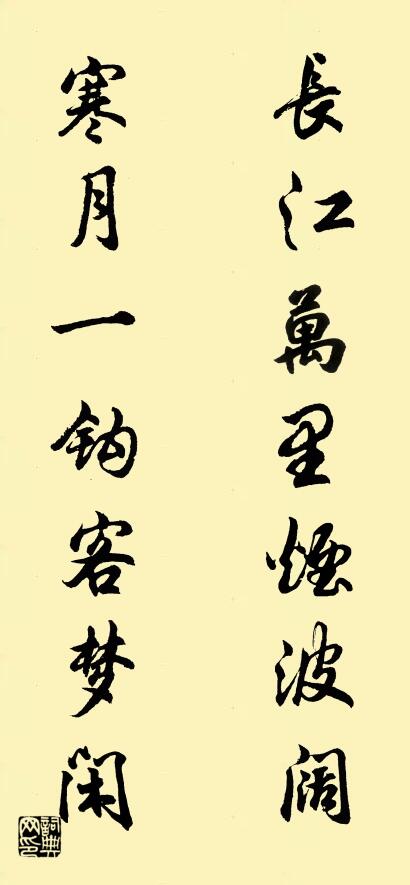 長江萬里煙波阔
寒月一钩客梦闲
詞典网印